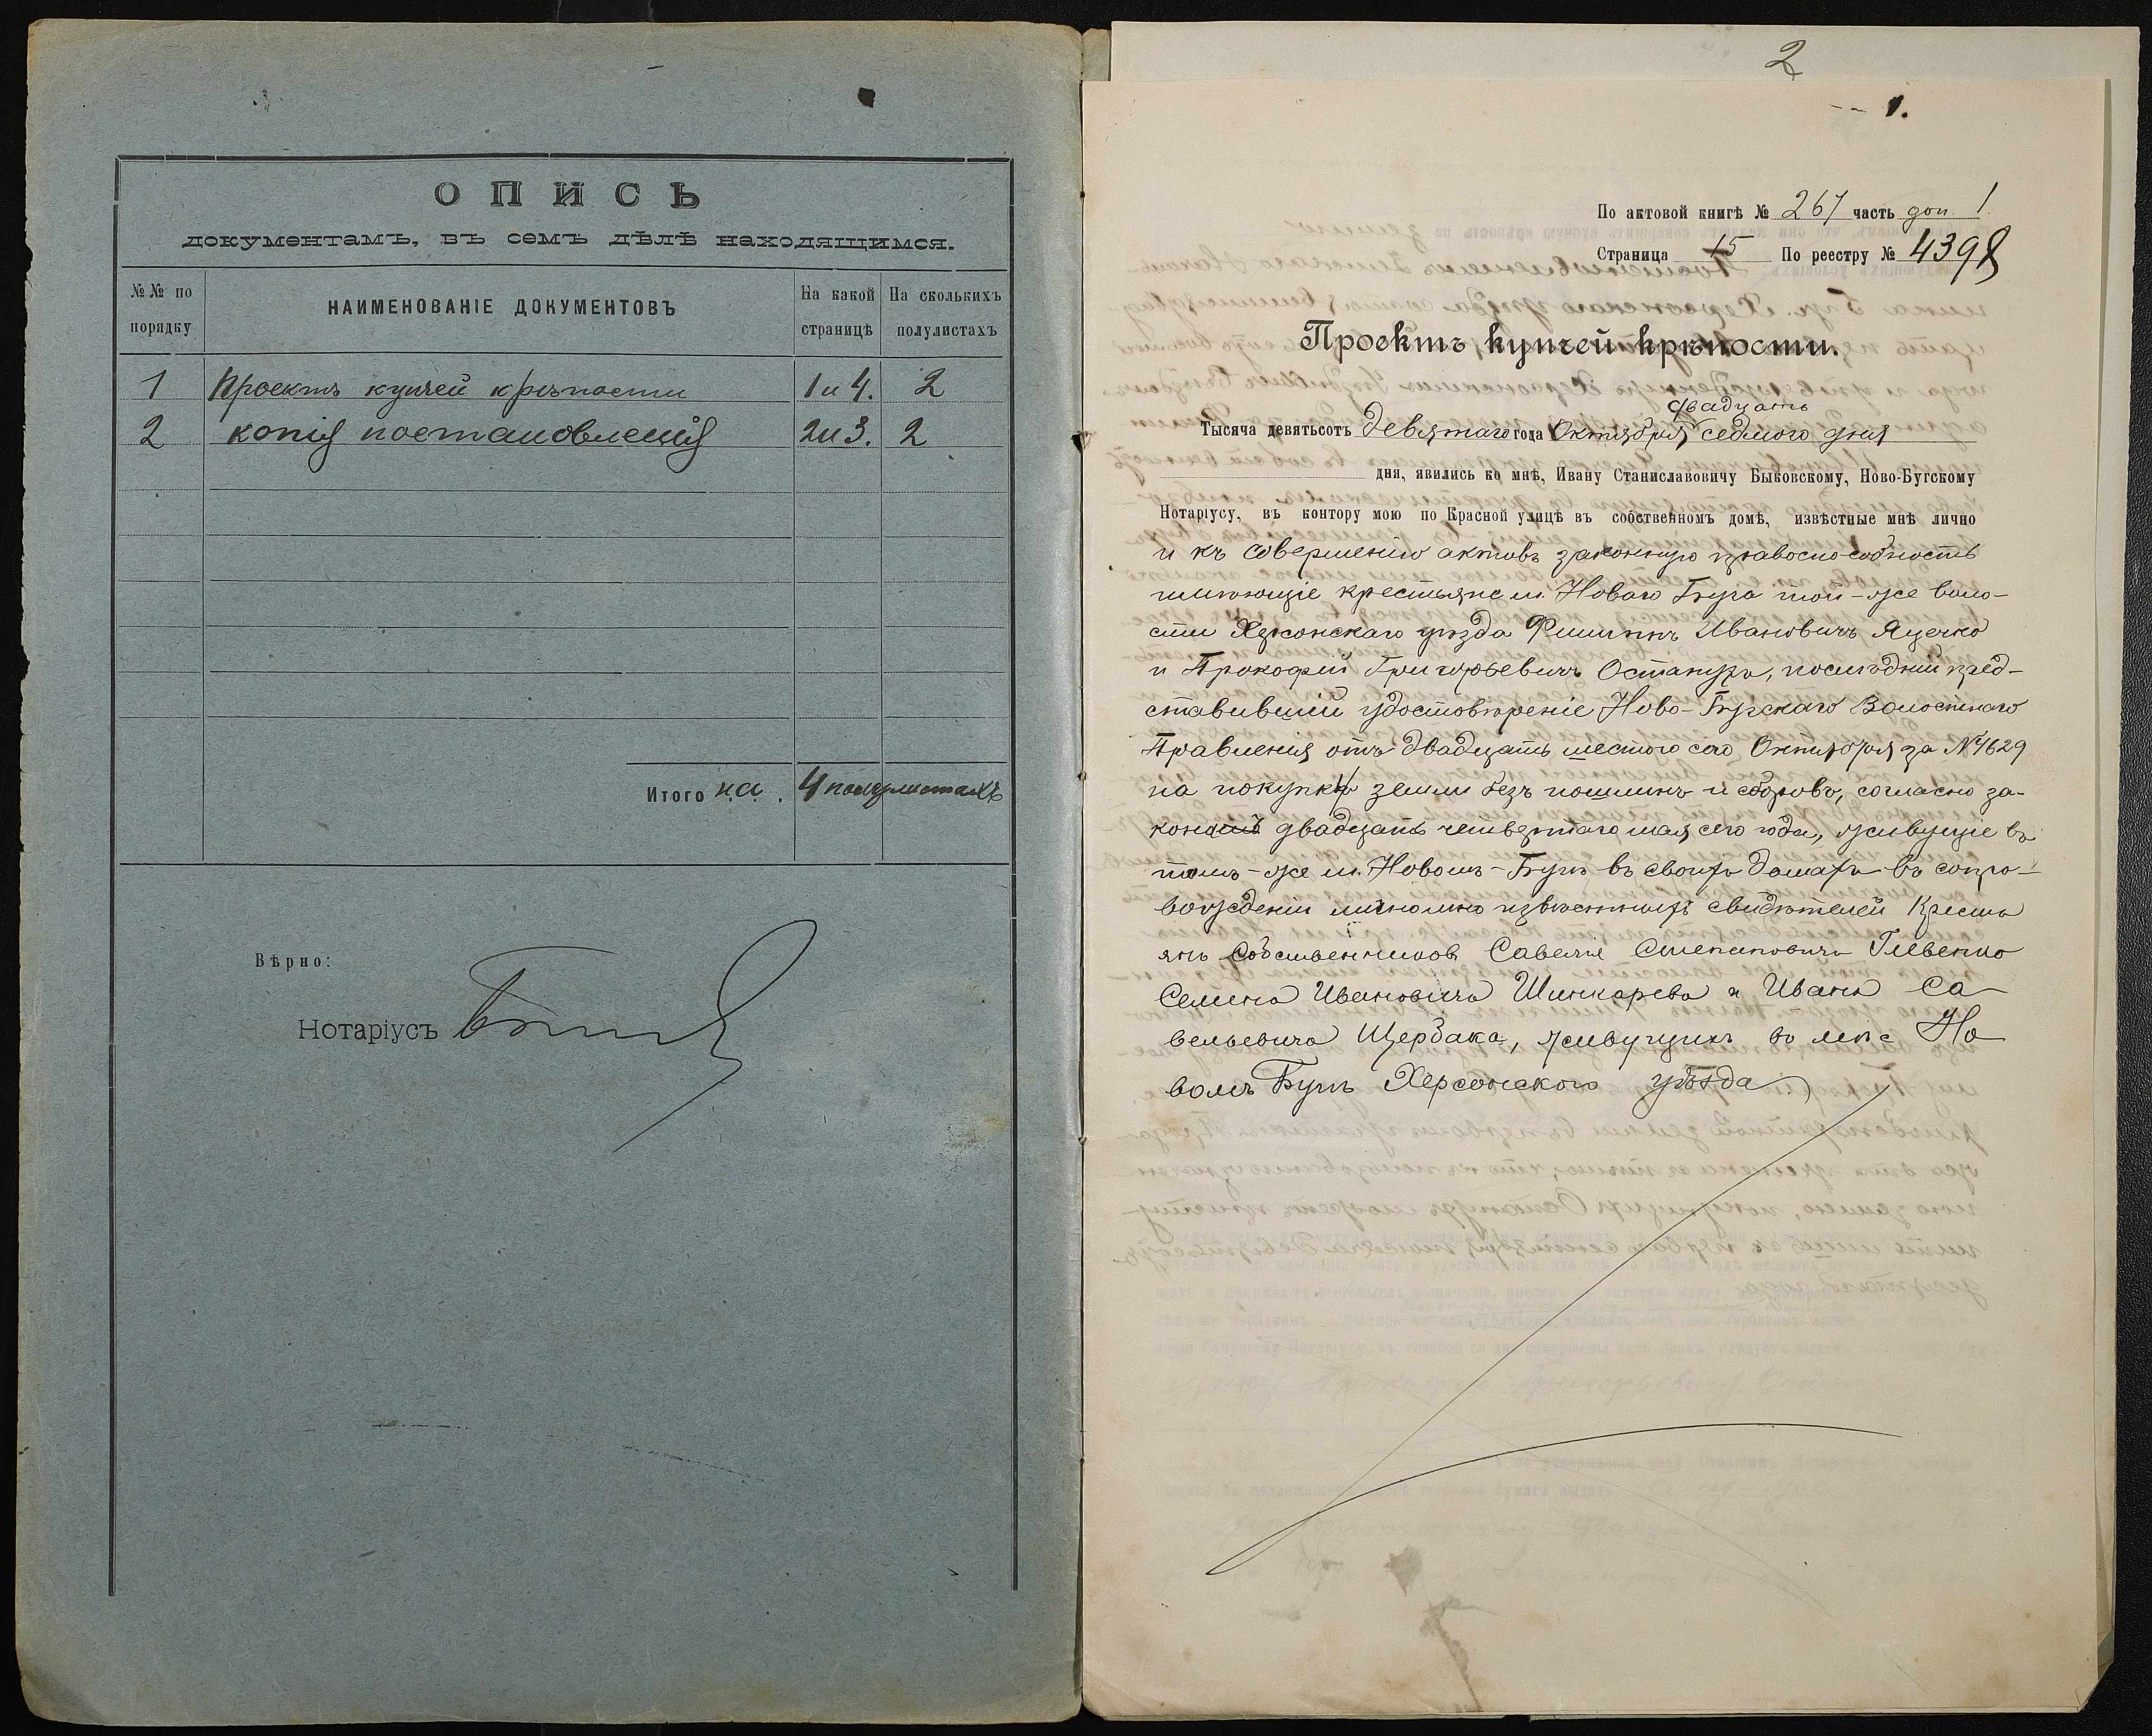 ОПИСЬ
документамъ, въ семъ дѣлѣ находящимся.
№№ по порядку
НАИМЕНОВАНІЕ ДОКУМЕНТОВЪ
На какой страницѣ
На сколькихъ полулистахъ
1 Проектъ купчей крѣпости 1 и 4. 2
2 копія постановленія 2 и 3. 2
Итого на 4 полулистахъ
Вѣрно:
Нотаріусъ
2
1.
По актовой книгѣ № 267 часть доп. 1.
Страница 15 По реестру № 4398
Проектъ купчей крѣпости.
двадцать
Тысяча девятьсотъ девятаго года Октября седмого дня
дня, явились ко мнѣ, Ивану Станиславовичу Быковскому, Ново-Бугскому
Нотаріусу, въ контору мою по Красной улицѣ въ собственномъ домѣ, извѣстные мнѣ лично
и къ совершенію актовъ законную правоспособность
имѣющіе крестьяне м. Новаго Буга той-же воло-
сти Херсонскаго уѣзда Филиппъ Ивановичъ Яценко
и Прокофій Григорьевичъ Остапуръ, послѣдній пред-
ставившій удостовѣреніе Ново-Бугскаго Волостнаго
Правленія отъ двадцать шестого сего Октября за №
на покупку земли безъ пошлинъ и сборовъ, согласно за-
двадцать четвертаго мая сего года, живущіе въ
томъ-же м. Новомъ-Бугѣ въ своихъ домахъ въ сопро-
вожденіи лично мнѣ извѣстныхъ свидѣтелей Кресть
янъ собственниковъ Савелія Степановича Глевенко
Семена Ивановича Шинкарева и Ивана Са
вельевича Щербака, живущихъ въ мѣс Но
вомъ Бугѣ Херсонского уѣзда